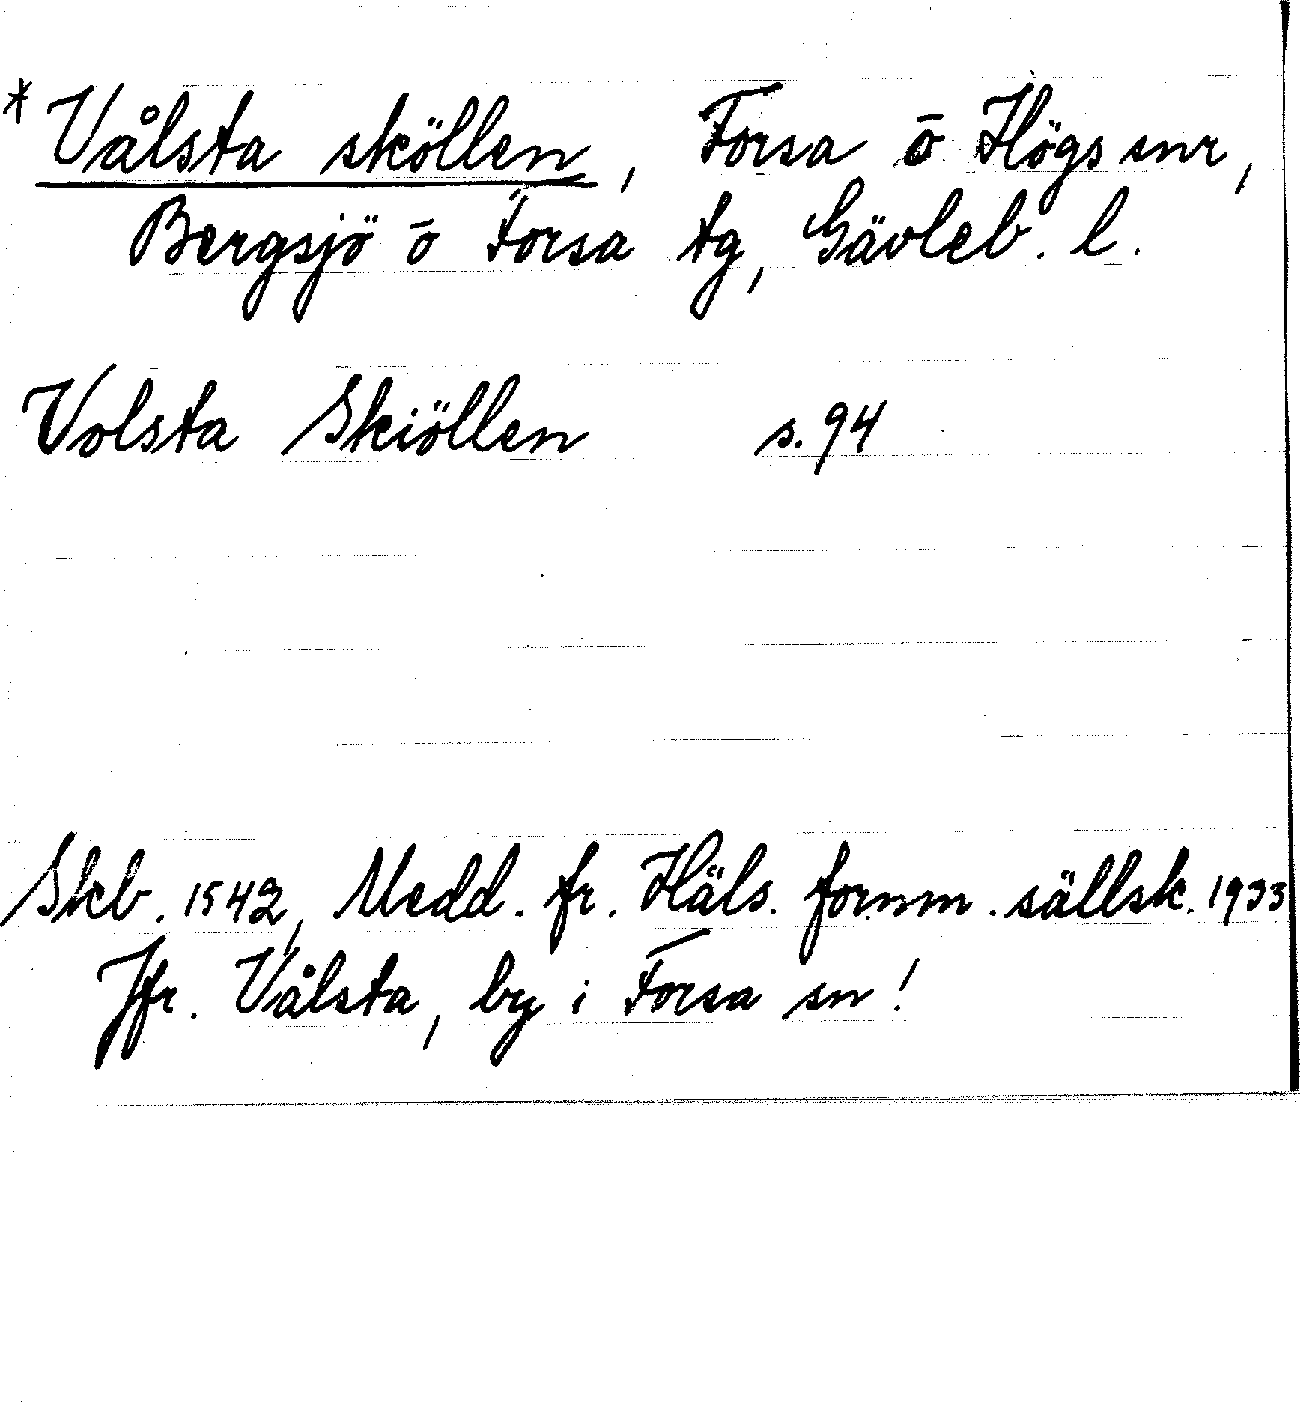 * Vålsta sköllen, Forsa ō Högs snr,
Bergsjö ō Forsa tg, Gävleb. l.
Volsta Skiöllen s. 94
Skb. 1542, Medd. fr. Häls. fornm. sällsk. 1933
Jfr. Vålsta, by i Forsa sn!